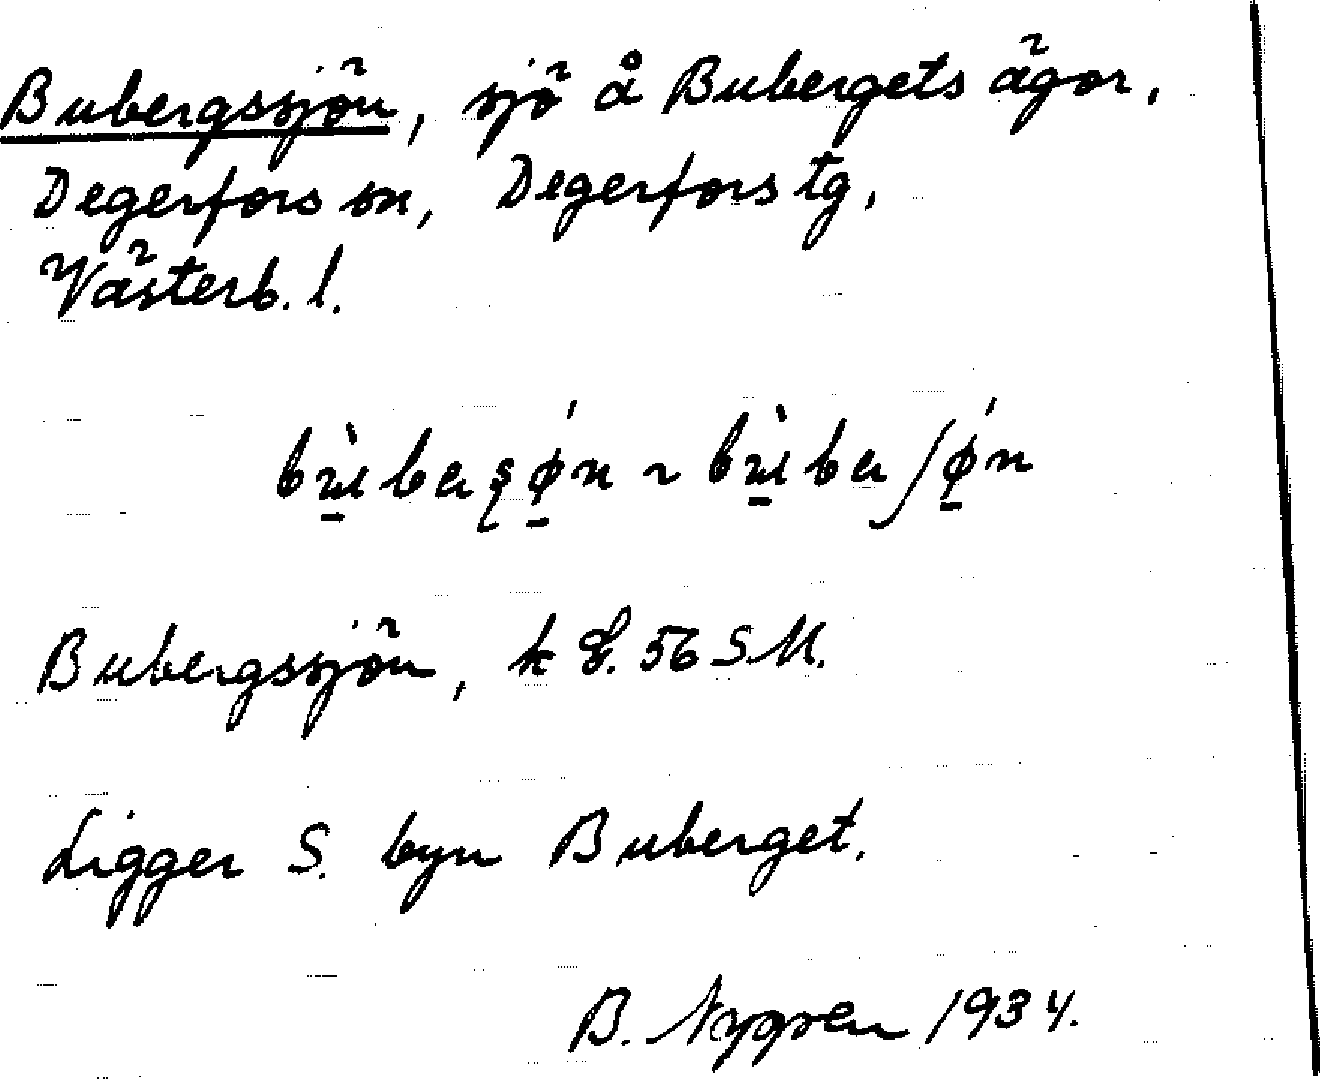 Bubergssjön, sjö å Bubergets ägor,
Degerfors sn, Degerfors tg,
Västerb. l.
Bubergssjön, k 8. 56 SM.
Ligger S. byn Buberget.
B. Nygren 1934.